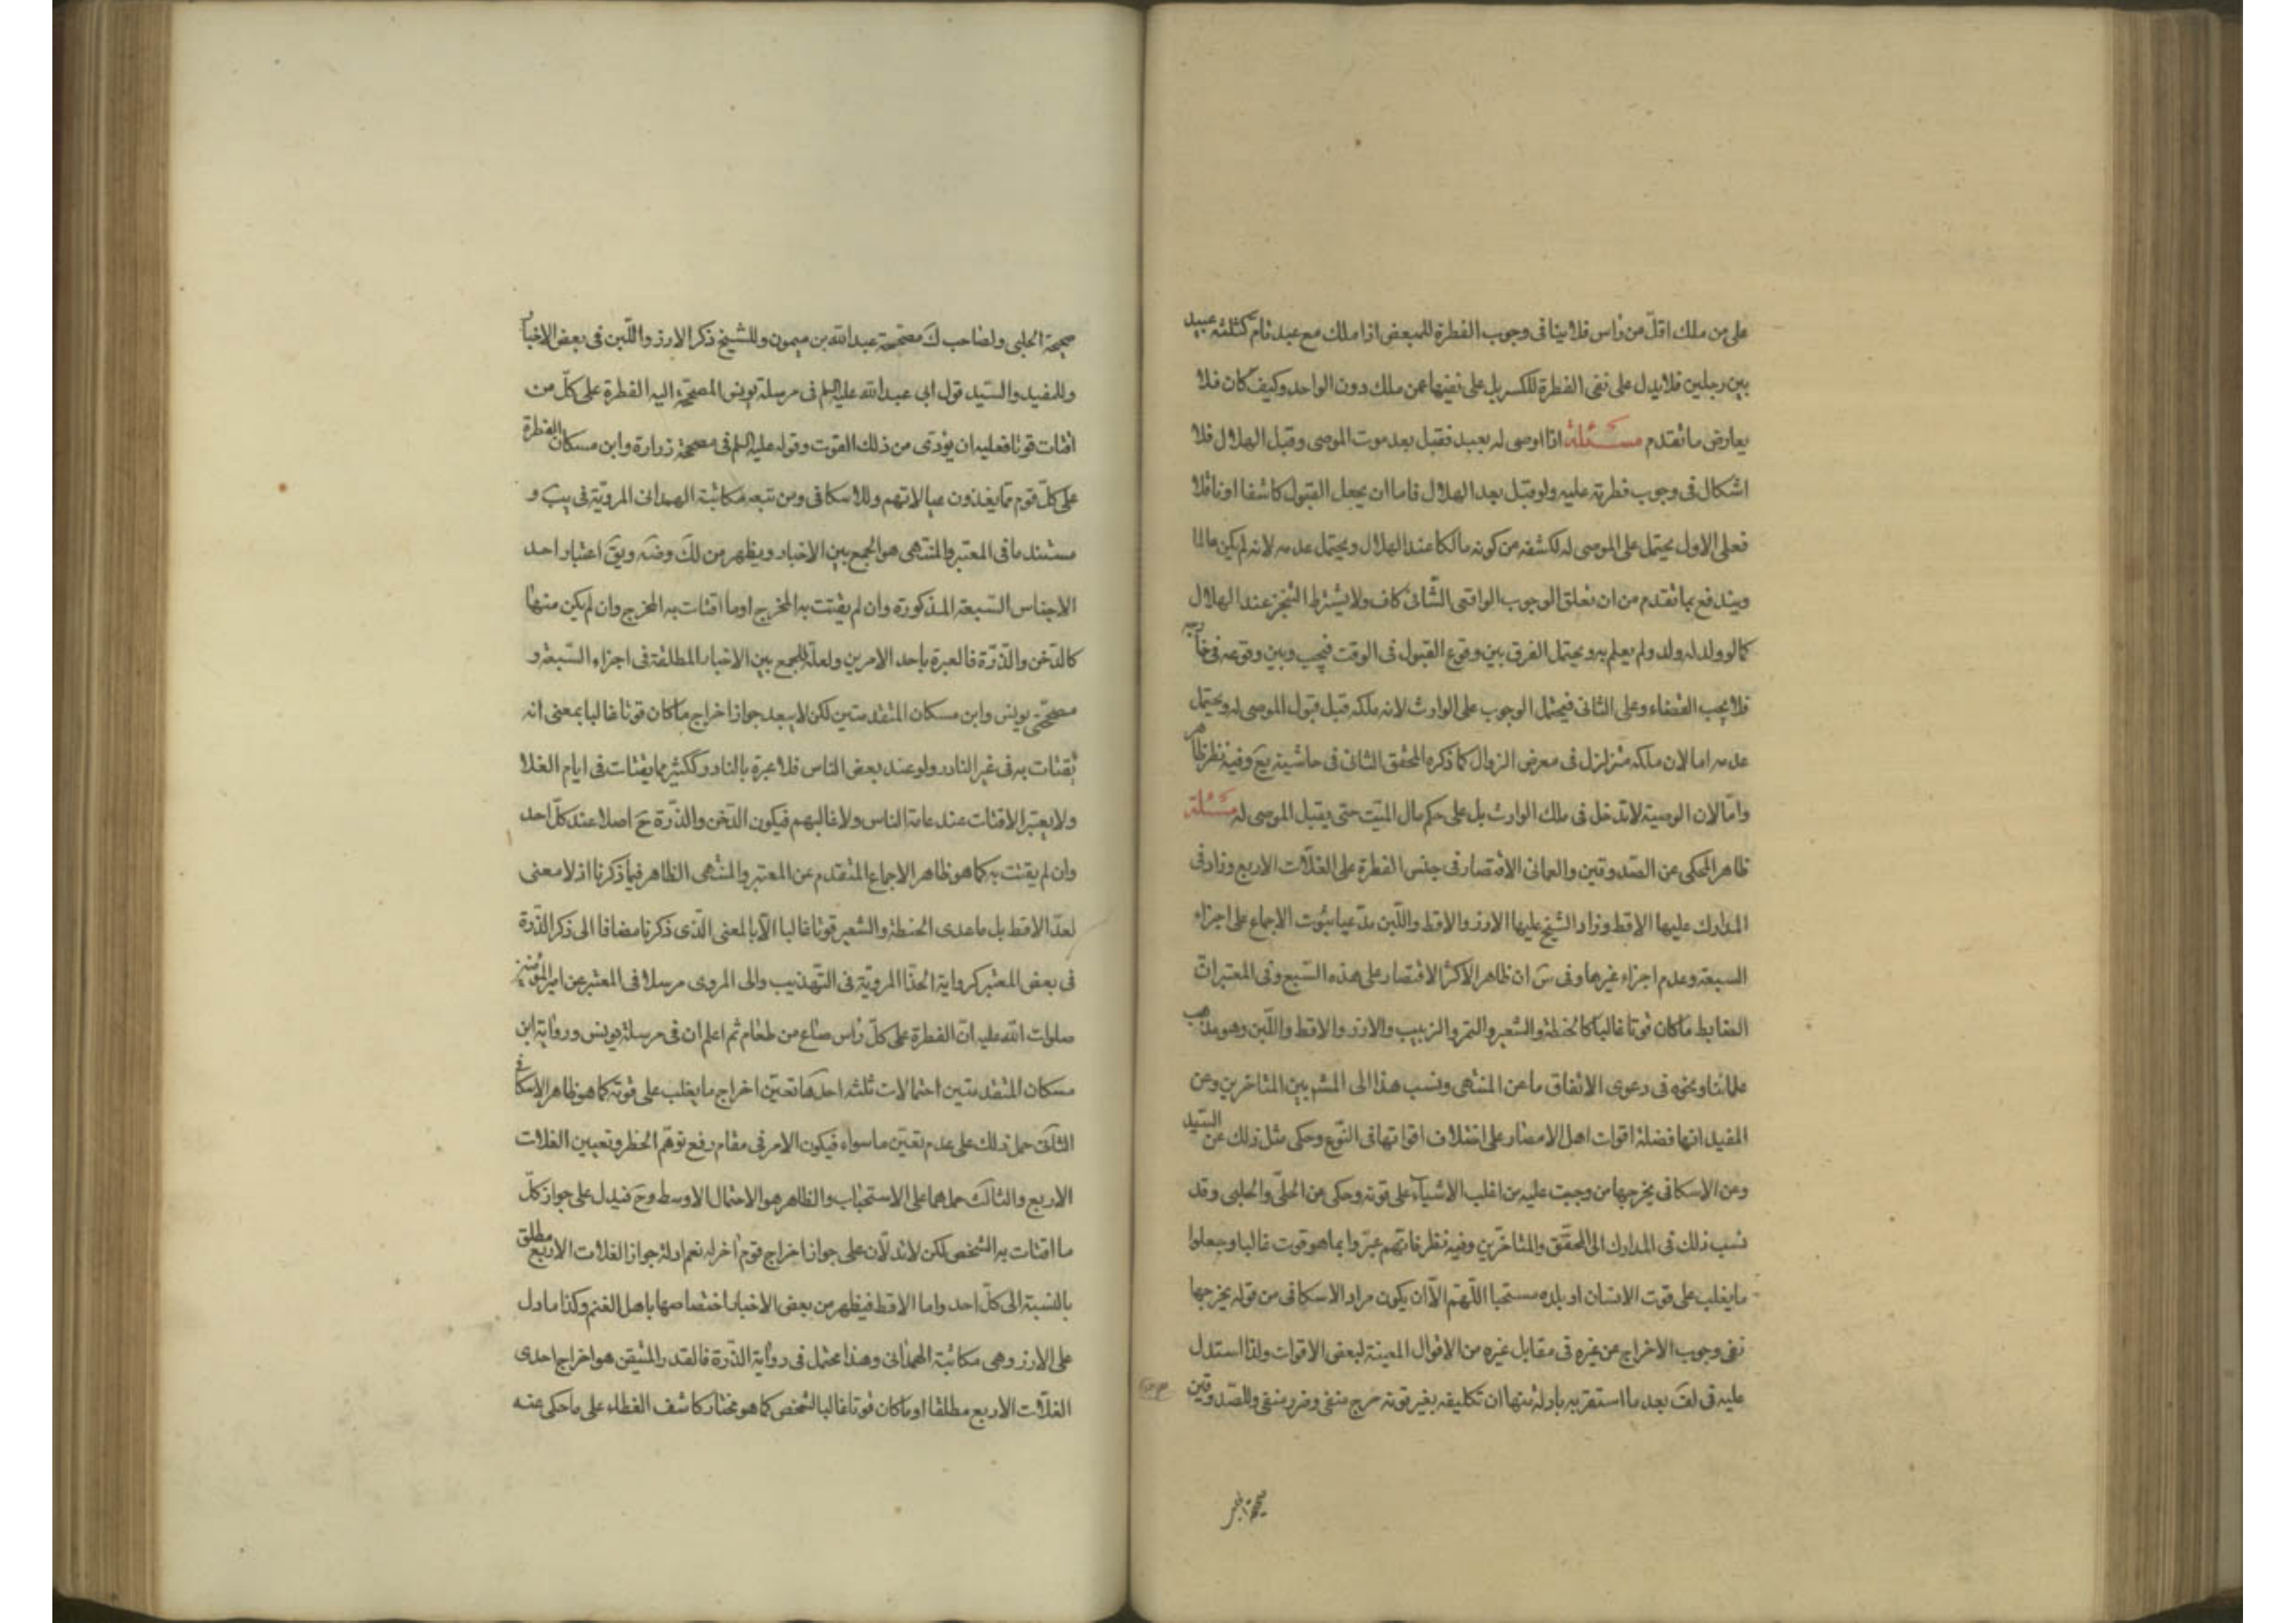 على من ملك اقلّ من راس فلا ينافى وجوب الفطرة للمبعض اذا ملك مع عبد تام كثلثة عبيد
بين رجلين فلا يدل على نفى الفطرة للكسر بل على نفيها عمن ملك دون الواحد وكيف كان فلا
يعارض ما تقدم مسئلة اذا اوصى له بعبد فقبل بعد موت الموصى وقبل الهلال فلا
اشكال فى وجوب فطرته عليه ولو قبل بعد الهلال فاما ان يجعل القبول كاشفا او ناقلا
فعلى الاول يحتمل على الموصى له لكشفه من كونه مالكا عند الهلال ويحتمل عدمه لانه لم يكن عالما
ويندفع بما تقدم من ان تعلق الوجوب الواقعى الشّانى كاف ولا يشترط التنجز عند الهلال
كما لو ولد له ولد ولم يعلم به ويحتمل الفرق بين وقوع القبول فى الوقت فيجب وبين وقوعه فى خارجه
فلا يجب القضاء وعلى الثانى فيحتمل الوجوب على الوارث لانه ملكه قبل قبول الموصى له ويحتمل
عدمه اما لان ملكه متزلزل فى معرض الزوال كما ذكره المحقق الثانى فى حاشية يع وفيه نظر ظاهر
وامّا لان الوصية لا تدخل فى ملك الوارث بل على حكم مال الميّت حتى يقبل الموصى له مسئلة
ظاهر المحكى عن الصّدوقين والعمانى الاقتصار فى جنس الفطرة على الغلّات الاربع وزاد فى
المدارك عليها الاقط وزاد الشيخ عليها الارز والاقط واللّبن مدّعيا ثبوت الاجماع على اجزاء
السبعة وعدم اجزاء غيرها وفى س ان ظاهر الاكثر الاقتصار على هذه السّبع وفى المعتبر ان
الضابط ما كان قوتا غالبا كالحنطة والشعير والتمر والزبيب والارز والاقط واللّبن وهو مذهب
علمائنا ونحوه فى دعوى الاتفاق ما عن المنتهى ونسب هذا الى المشهر بين المتاخرين وعن
المفيد انها فضلة اقوات اهل الامصار على اختلاف اقواتها فى النّوع وحكى مثل ذلك عن السّيد
وعن الاسكافى يخرجها من وجبت عليه من اغلب الاشياء على قوته وحكى عن الحلّى والحلبى وقد
نسب ذلك فى المدارك الى المحقّق والمتاخّرين وفيه نظر فانهم عبّروا بما هو قوت غالبا وجعلوا
ما يغلب على قوت الانسان او بلده مستحبا اللّهم الّا ان يكون مراد الاسكافى من قوله يخرجها
نفى وجوب الاخراج عن غيره فى مقابل غيره من الاقوال المعينة لبعض الاقوات ولذا استدل
عليه فى لف بعد ما استقربه بادلة منها ان تكليفه بغير قوته حرج منفى وضرر منفى وللصّدوقين
صحيحة الحلبى ولصاحب ك مصححة عبد الله بن ميمون وللشيخ ذكر الارز واللّبن فى بعض الاخبار
وللمفيد والسّيد قول ابى عبد الله عليه السلم فى مرسلة يونس المصحّحة اليه الفطرة على كلّ من
اقتات قوتا فعليه ان يؤدّى من ذلك القوت وقوله عليه السلم فى مصححة زرارة وابن مسكان الفطرة
على كلّ قوم مما يغذون عيالاتهم وللاسكافى ومن تبعه مكاتبة الهمدانى المرويّة فى يب و
مستند ما فى المعتبر والمنتهى هو الجمع بين الاخبار ويظهر من لك وضه ويق اعتبار احد
الاجناس السّبعة المذكورة وان لم يقتت به المخرج او ما اقتات به المخرج وان لم يكن منها
كالدّخن والذّرة فالعبرة باحد الامرين ولعلّه للجمع بين الاخبار المطلقة فى اجزاء السّبعة و
مصححتى يونس وابن مسكان المتقدمتين لكن لا يبعد جواز اخراج ما كان قوتا غالبا بمعنى انه
يقتات به فى غير النادر ولو عند بعض الناس فلا عبرة بالنادر ككثير مما يقتات فى ايام الغلا
ولا يعتبر الاقتيات عند عامة الناس ولا غالبهم فيكون الدّخن والذّرة ح اصلا عند كلّ احد
وان لم يقتت به كما هو ظاهر الاجماع المتقدم عن المعتبر والمنتهى الظاهر فيما ذكرنا اذ لا معنى
لعدّ الاقط بل ما عدى الحنطة والشعير قوتا غالبا الّا بالمعنى الّذى ذكرنا مضافا الى ذكر الذّرة
فى بعض المعتبر كرواية الحذّا المرويّة فى التّهذيب والى المروى مرسلا فى المعتبر عن امير المؤمنين
صلوات الله عليه انّ الفطرة على كلّ راس صاع من طعام ثم اعلم ان فى مرسلة يونس ورواية ابن
مسكان المتقدمتين احتمالات ثلثه احدها تعيّن اخراج ما يغلب على قوته كما هو ظاهر الاسكافى
الثانى حمل ذلك على عدم تعيّن ما سواه فيكون الامر فى مقام رفع توهّم الحظر وتعيين الغلات
الاربع والثالث حملهما على الاستحباب والظاهر هو الاحتمال الاوسط وح فيدل على جواز كلّ
ما اقتات به الشخص لكن لا تدلّان على جواز اخراج قوم اخر له نعم ادلة جواز الغلات الاربع مطلق
بالنسبة الى كلّ احد واما الاقط فيظهر من بعض الاخبار اختصاصها باهل الغنم وكذا ما دل
على الارز وهى مكاتبة الهمدانى وهذا محتمل فى رواية الذّرة فالقدر المتيقن هو اخراج احدى
الغلّات الاربع مطلقا او ما كان قوتا غالبا لشخص كما هو مختار كاشف الغطاء على ما حكى عنه